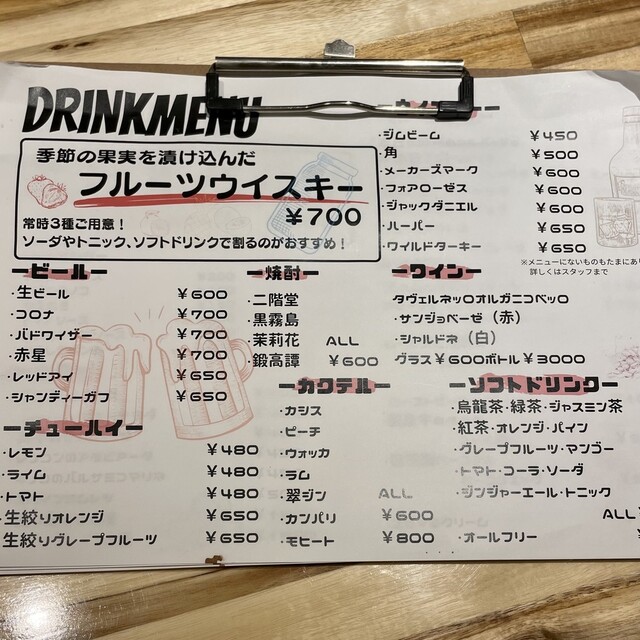 DRINKMENU
季節の果実を漬け込んだ
フルーツウイスキー
¥700
常時3種ご用意！
ソーダやトニック、ソフトドリンクで割るのがおすすめ！
・ジムビーム ¥450
・角 ¥500
・メーカーズマーク ¥600
・フォアローゼス ¥600
・ジャックダニエル ¥600
・ハーパー ¥650
・ワイルドターキー ¥650
※メニューにないものもたまにあり
詳しくはスタッフまで
ービールー
・生ビール ¥600
・コロナ ¥700
・バドワイザー ¥700
・赤星 ¥700
・レッドアイ ¥650
・シャンディーガフ ¥650
ーチューハイー
・レモン ¥480
・ライム ¥480
・トマト ¥480
・生絞りオレンジ ¥650
・生絞りグレープフルーツ ¥650
ー焼酎ー
・二階堂
・黒霧島
・茉莉花 ALL
・鍛高譚 ¥600
ーカクテルー
・カシス
・ピーチ
・ウォッカ
・ラム
・翠ジン ALL
・カンパリ ¥600
・モヒート ¥800
ーワインー
タヴェルネッロオルガニコベッロ
・サンジョベーゼ（赤）
・シャルドネ（白）
グラス¥600ボトル¥3000
ーソフトドリンクー
・烏龍茶・緑茶・ジャスミン茶
・紅茶・オレンジ・パイン
・グレープフルーツ・マンゴー
・トマト・コーラ・ソーダ
・ジンジャーエール・トニック
ALL
・オールフリー